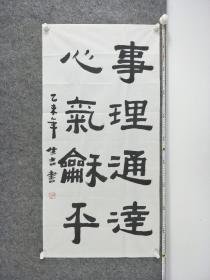 事理通達
心氣龢平
乙未年
書